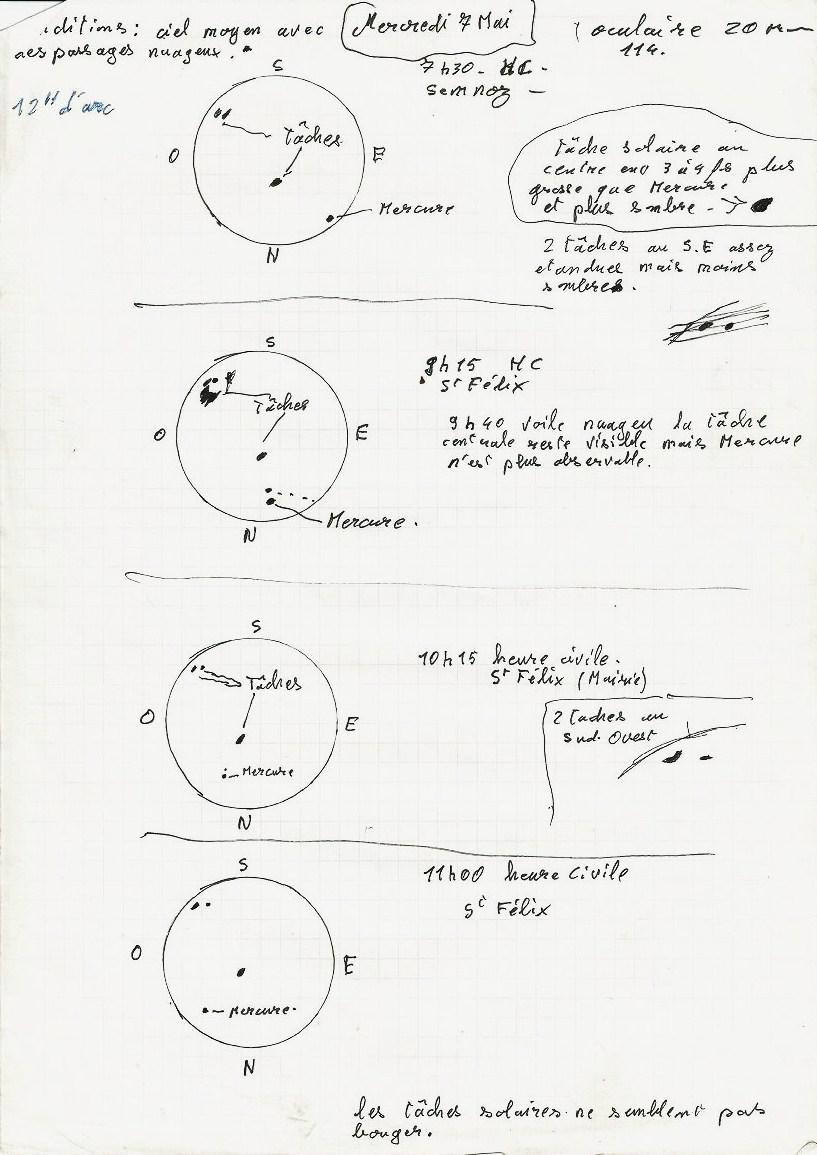 ditions : ciel moyen avec
des passages nuageux.
Mercredi 7 Mai
oculaire 20 mm
114.
12" d'arc
7h30 - HC -
Semnoz -
S
O
E
N
Tâches
Mercure
Tâche solaire au
centre env 3 à 4 fs plus
grosse que Mercure
et plus sombre -
2 tâches au S.E assez
etendues mais moins
sombres.
S
O
E
N
Tâches
Mercure.
9h15 HC
St Félix
9h40 voile nuageu la tâche
centrale reste visible mais Mercure
n'est plus observable.
S
O
E
N
Tâches
Mercure
10h15 heure civile.
St Félix (Mairie)
2 Taches au
Sud. Ouest
S
O
E
N
Mercure.
11h00 heure Civile
St Félix
les tâches solaires ne semblent pas
bouger.